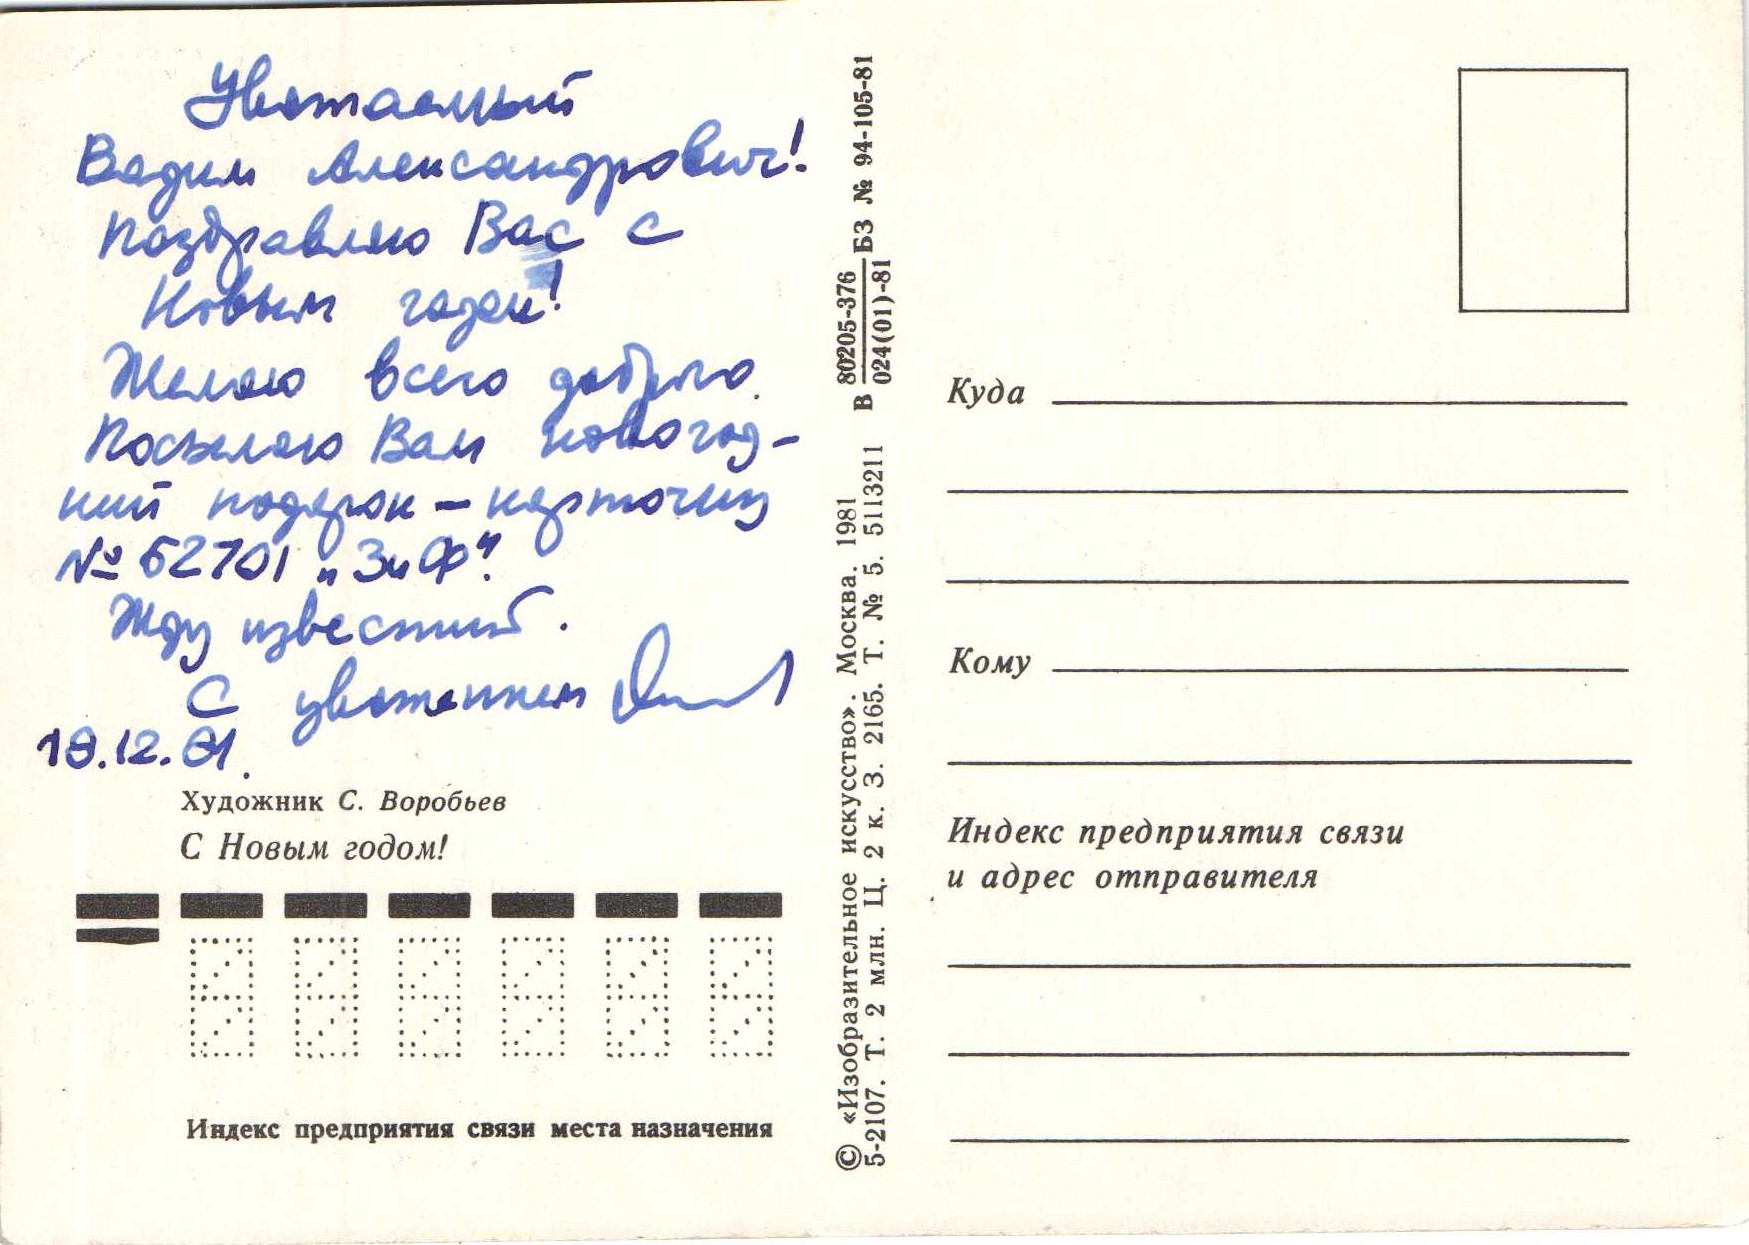 Уважаемый
Вадим Александрович!
Поздравляю Вас с
Новым годом!
Желаю всего доброго.
Посылаю Вам новогод-
ний подарок – карточку
№ 62701 „ЗиФ".
Жду известий.
С уважением
19.12.81.
Художник С. Воробьев
С Новым годом!
Индекс предприятия связи места назначения
© «Изобразительное искусство». Москва. 1981 В 80205-376 БЗ № 94-105-81
024(01)-81
5-2107. Т. 2 млн. Ц. 2 к. З. 2165. Т. № 5. 5113211
Куда
Кому
Индекс предприятия связи
и адрес отправителя